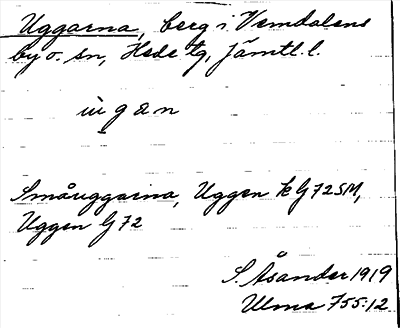 Uggarna, berg i Vemdalens
by o. sn, Hede tg, Jämtl. l.
Småuggarna, Uggen k G72SM,
Uggen G72
S. Åsander 1919
Ulma 755:12